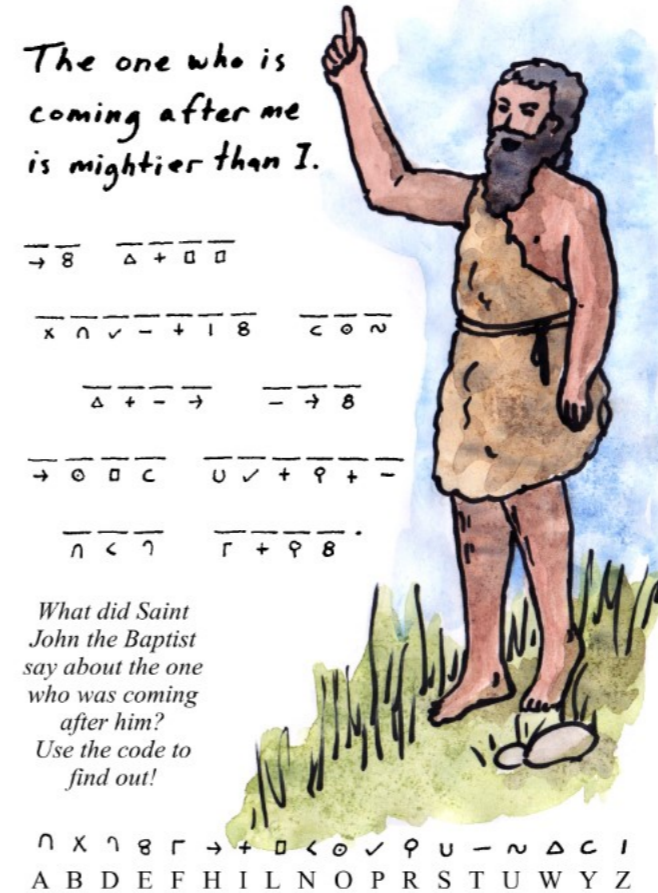 The one who is
coming after me
is mightier than I.
→ 8 △ + □ □
x ∩ ✓ – + ı 8 c ⊙ ~
△ + – → – → 8
→ ⊙ □ c ∪ ✓ + ♀ + –
∩ < ๅ Γ + ♀ 8 .
What did Saint
John the Baptist
say about the one
who was coming
after him?
Use the code to
find out!
∩ x ๅ 8 Γ → + □ < ⊙ ✓ ♀ ∪ – ~ △ c ı
A B D E F H I L N O P R S T U W Y Z